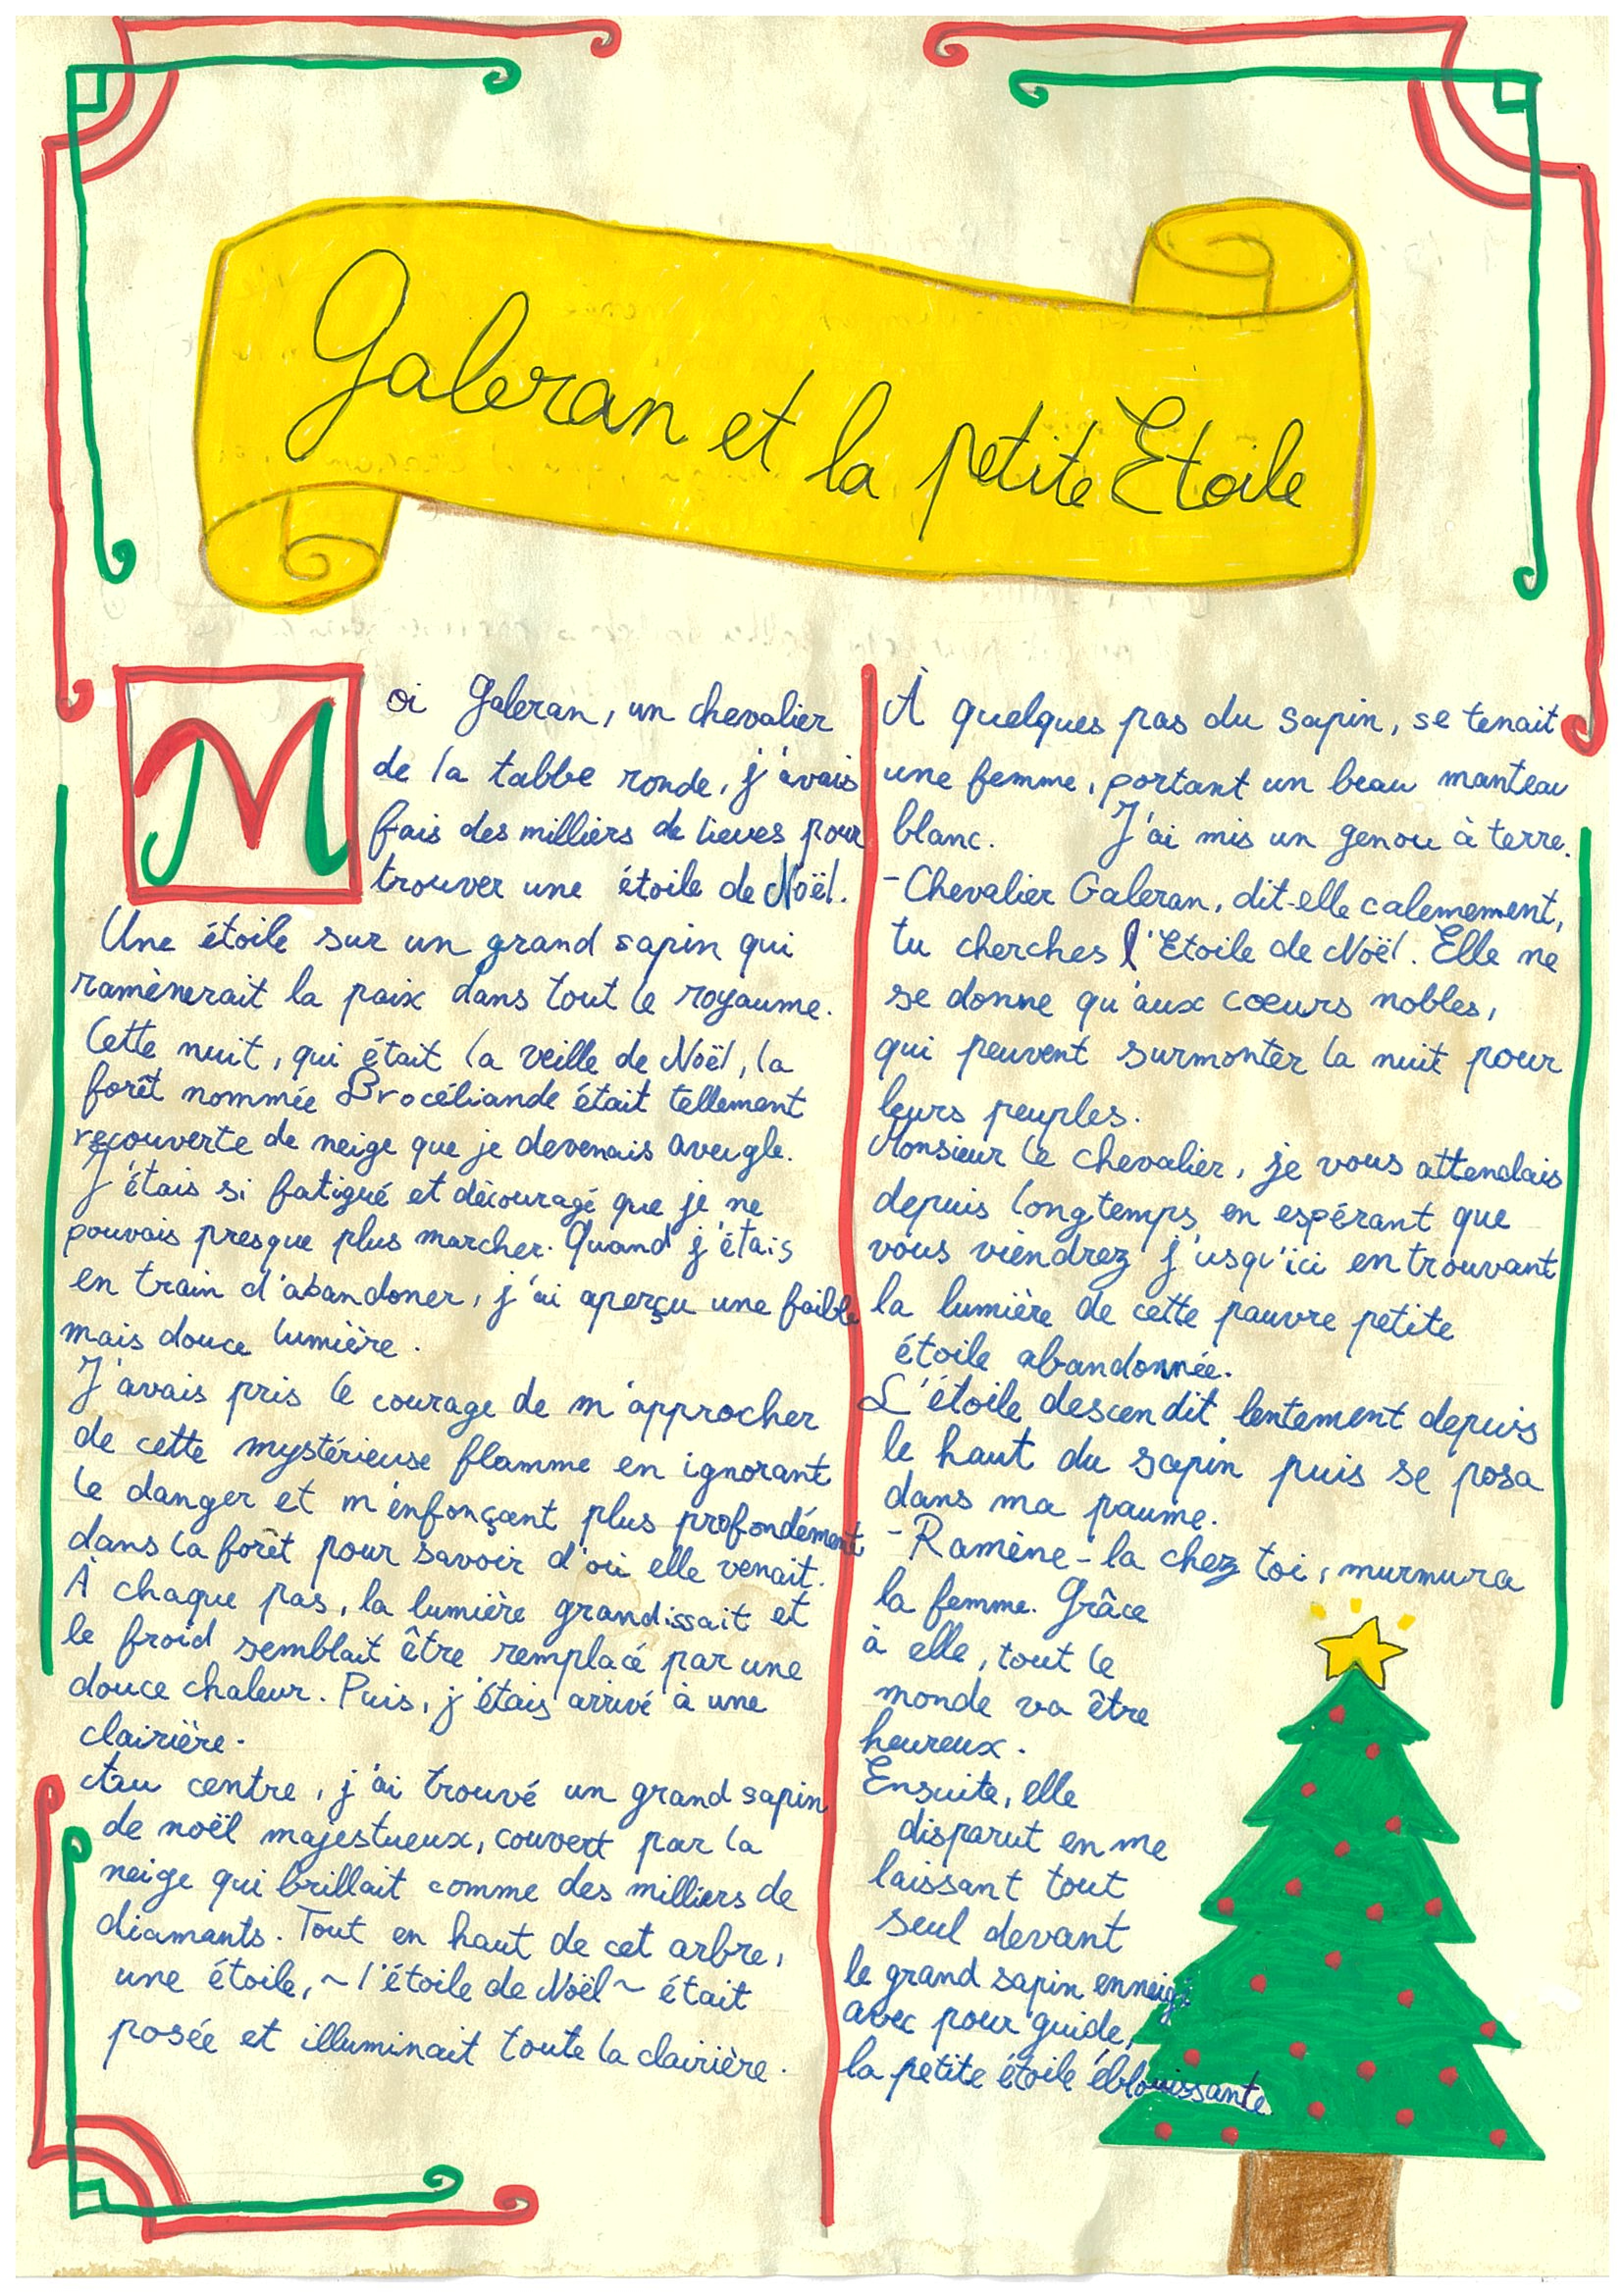 Galeran et la petite Etoile
Moi Galeran, un chevalier
de la tabbe ronde, j'avais
fais des milliers de lieues pour
trouver une étoile de Noël.
Une étoile sur un grand sapin qui
ramènerait la paix dans tout le royaume.
Cette nuit, qui était la veille de Noël, la
forêt nommée Brocéliande était tellement
recouverte de neige que je devenais aveugle.
J'étais si fatigué et découragé que je ne
pouvais presque plus marcher. Quand j'étais
en train d'abandoner, j'ai aperçu une faible
mais douce lumière.
J'avais pris le courage de m'approcher
de cette mystérieuse flamme en ignorant
le danger et m'enfonçant plus profondément
dans la forêt pour savoir d'où elle venait.
À chaque pas, la lumière grandissait et
le froid semblait être remplacé par une
douce chaleur. Puis, j'étais arrivé à une
clairière.
Au centre, j'ai trouvé un grand sapin
de noël majestueux, couvert par la
neige qui brillait comme des milliers de
diamants. Tout en haut de cet arbre,
une étoile, ~ l'étoile de Noël ~ était
posée et illuminait toute la clairière.
À quelques pas du sapin, se tenait
une femme, portant un beau manteau
blanc. J'ai mis un genou à terre.
- Chevalier Galeran, dit-elle calemement,
tu cherches l'Etoile de Noël. Elle ne
se donne qu'aux coeurs nobles,
qui peuvent surmonter la nuit pour
leurs peuples.
Monsieur le chevalier, je vous attendais
depuis longtemps en espérant que
vous viendrez j'usqu'ici en trouvant
la lumière de cette pauvre petite
étoile abandonnée.
L'étoile descendit lentement depuis
le haut du sapin puis se posa
dans ma paume.
- Ramène-la chez toi, murmura
la femme. Grâce
à elle, tout le
monde va être
heureux.
Ensuite, elle
disparut en me
laissant tout
seul devant
le grand sapin enneigé
avec pour guide,
la petite étoile éblouissante